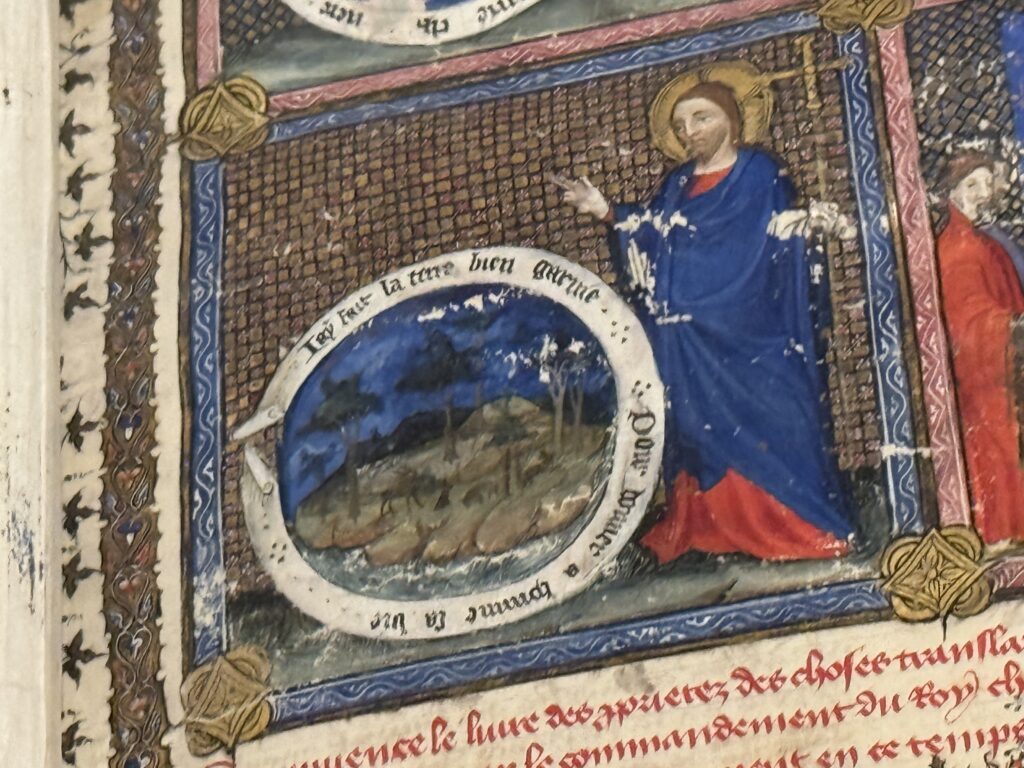 Iay fait la terre bien garnie
Pour donner a homme sa vie
le livre des proprietez des choses transla
le commandement du Roy ch
en ce temps